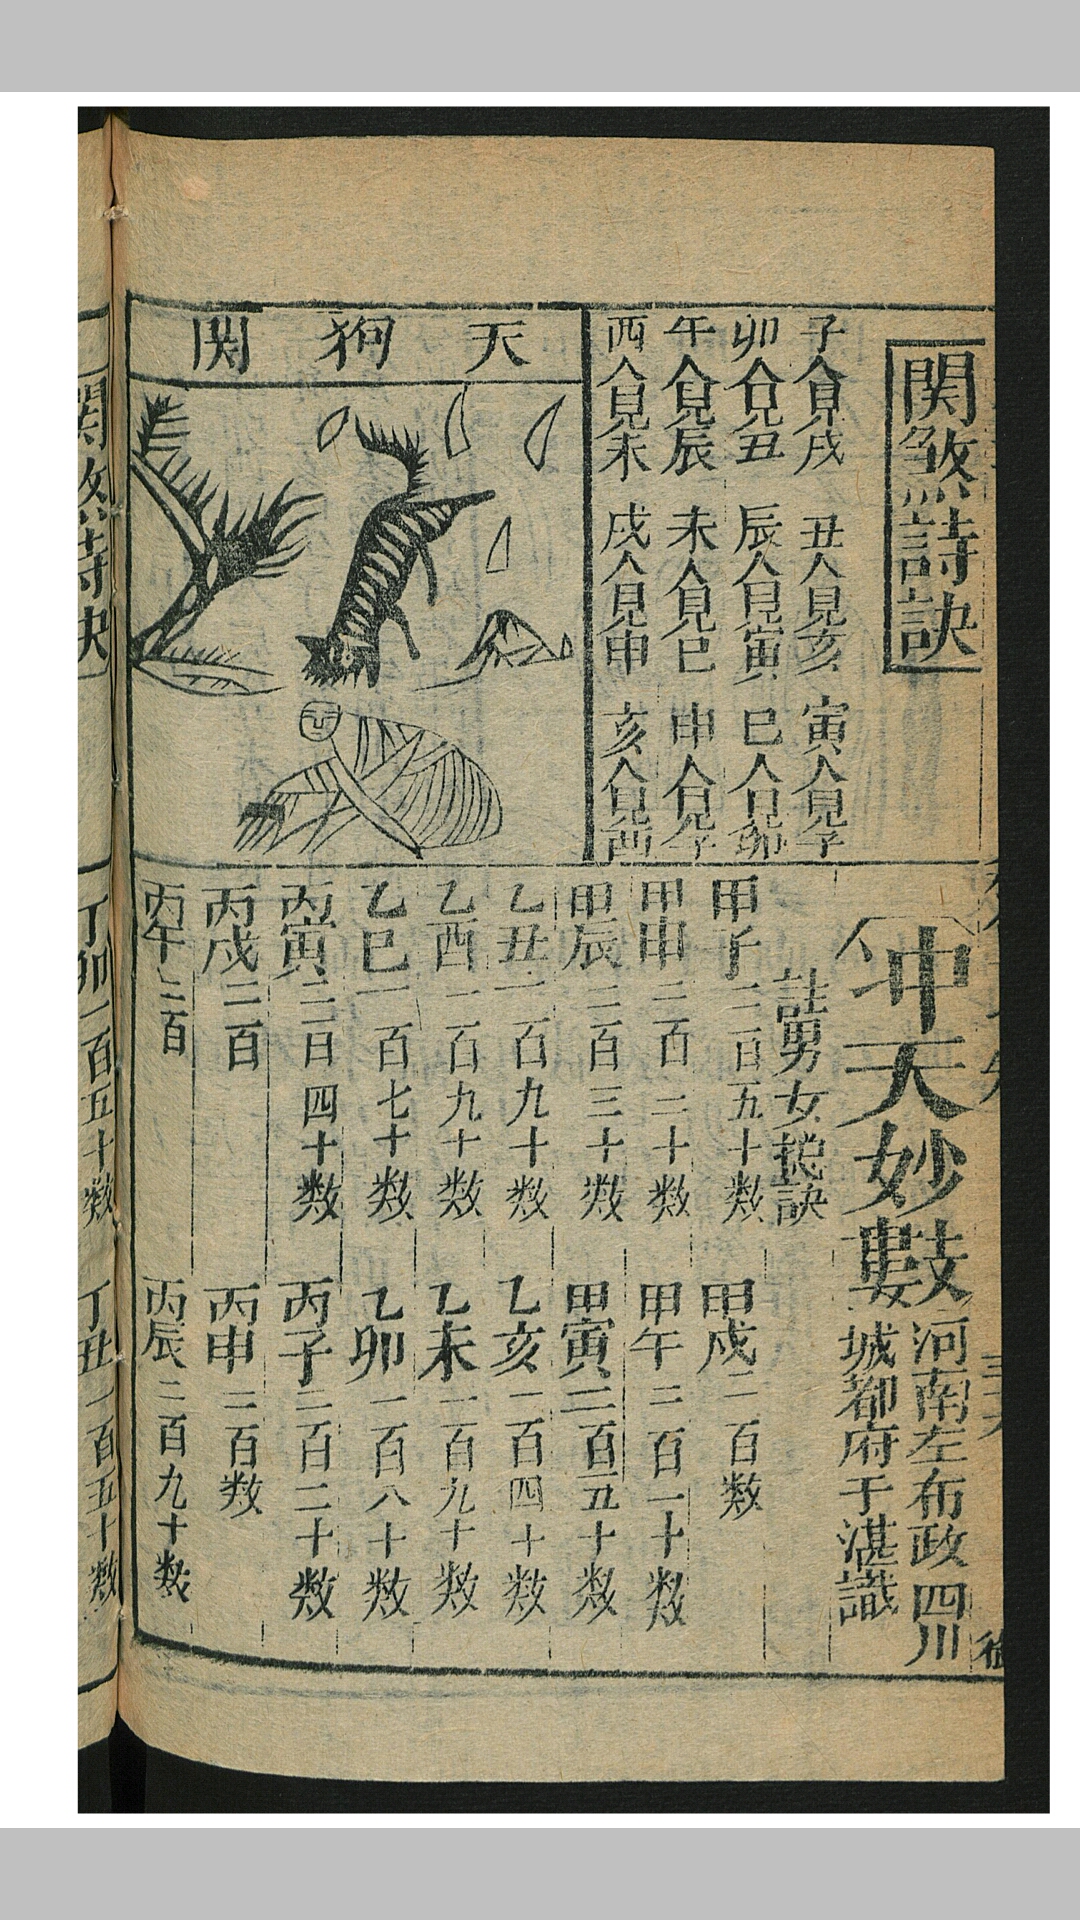 関煞詩訣
子人見戌　丑人見亥　寅人見子
卯人見丑　辰人見寅　巳人見卯
午人見辰　未人見巳　申人見午
酉人見未　戌人見申　亥人見酉
天狗関
冲天妙數
河南左布政四川
城都府于湛識
註男女捴訣
甲子二百五十数　甲戌二百数
甲申二百二十数　甲午二百一十数
甲辰二百三十数　甲寅二百五十数
乙丑一百九十数　乙亥一百四十数
乙酉一百九十数　乙未一百九十数
乙巳一百七十数　乙卯一百八十数
丙寅二百四十数　丙子二百二十数
丙戌二百　丙申二百数
丙午二百　丙辰二百九十数
関煞詩訣
丁卯一百五十数　丁丑一百五十数